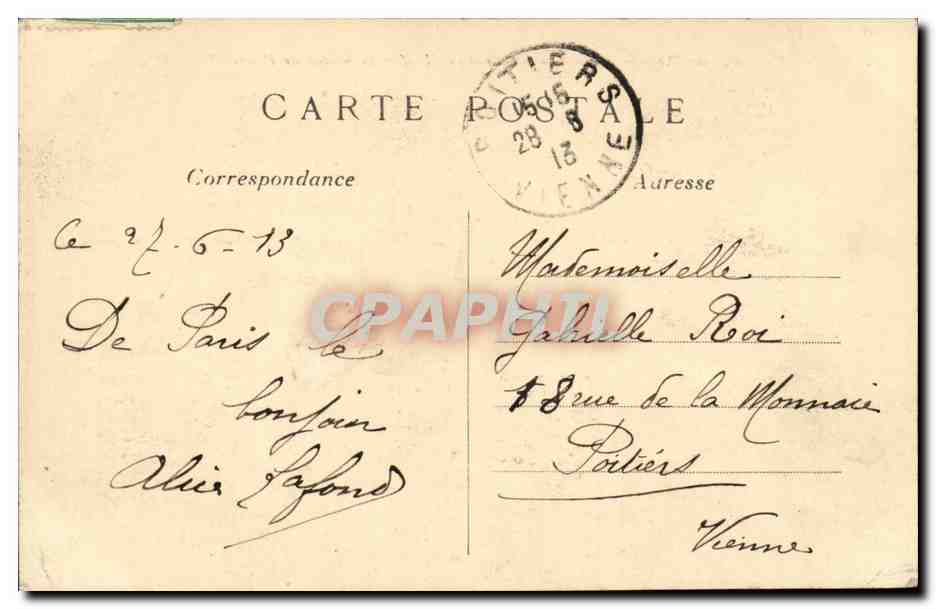 CARTE POSTALE
POITIERS
15 15
28 8
13
VIENNE
Correspondance
Adresse
Ce 27-6-13
De Paris le
bonjour
Alice Lafond
Mademoiselle
Gabrielle Roi
18 rue de la Monnaie
Poitiérs
Vienne
CPAPHIL